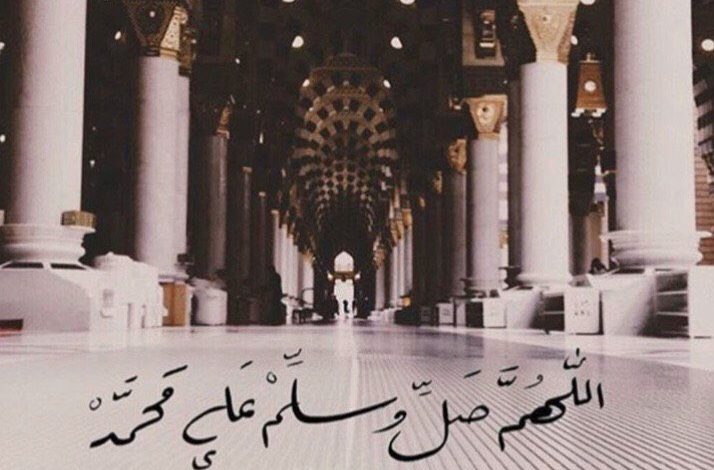 اللَّهُمَّ صَلِّ وسلِّمْ عَلي مَحمَّدْ